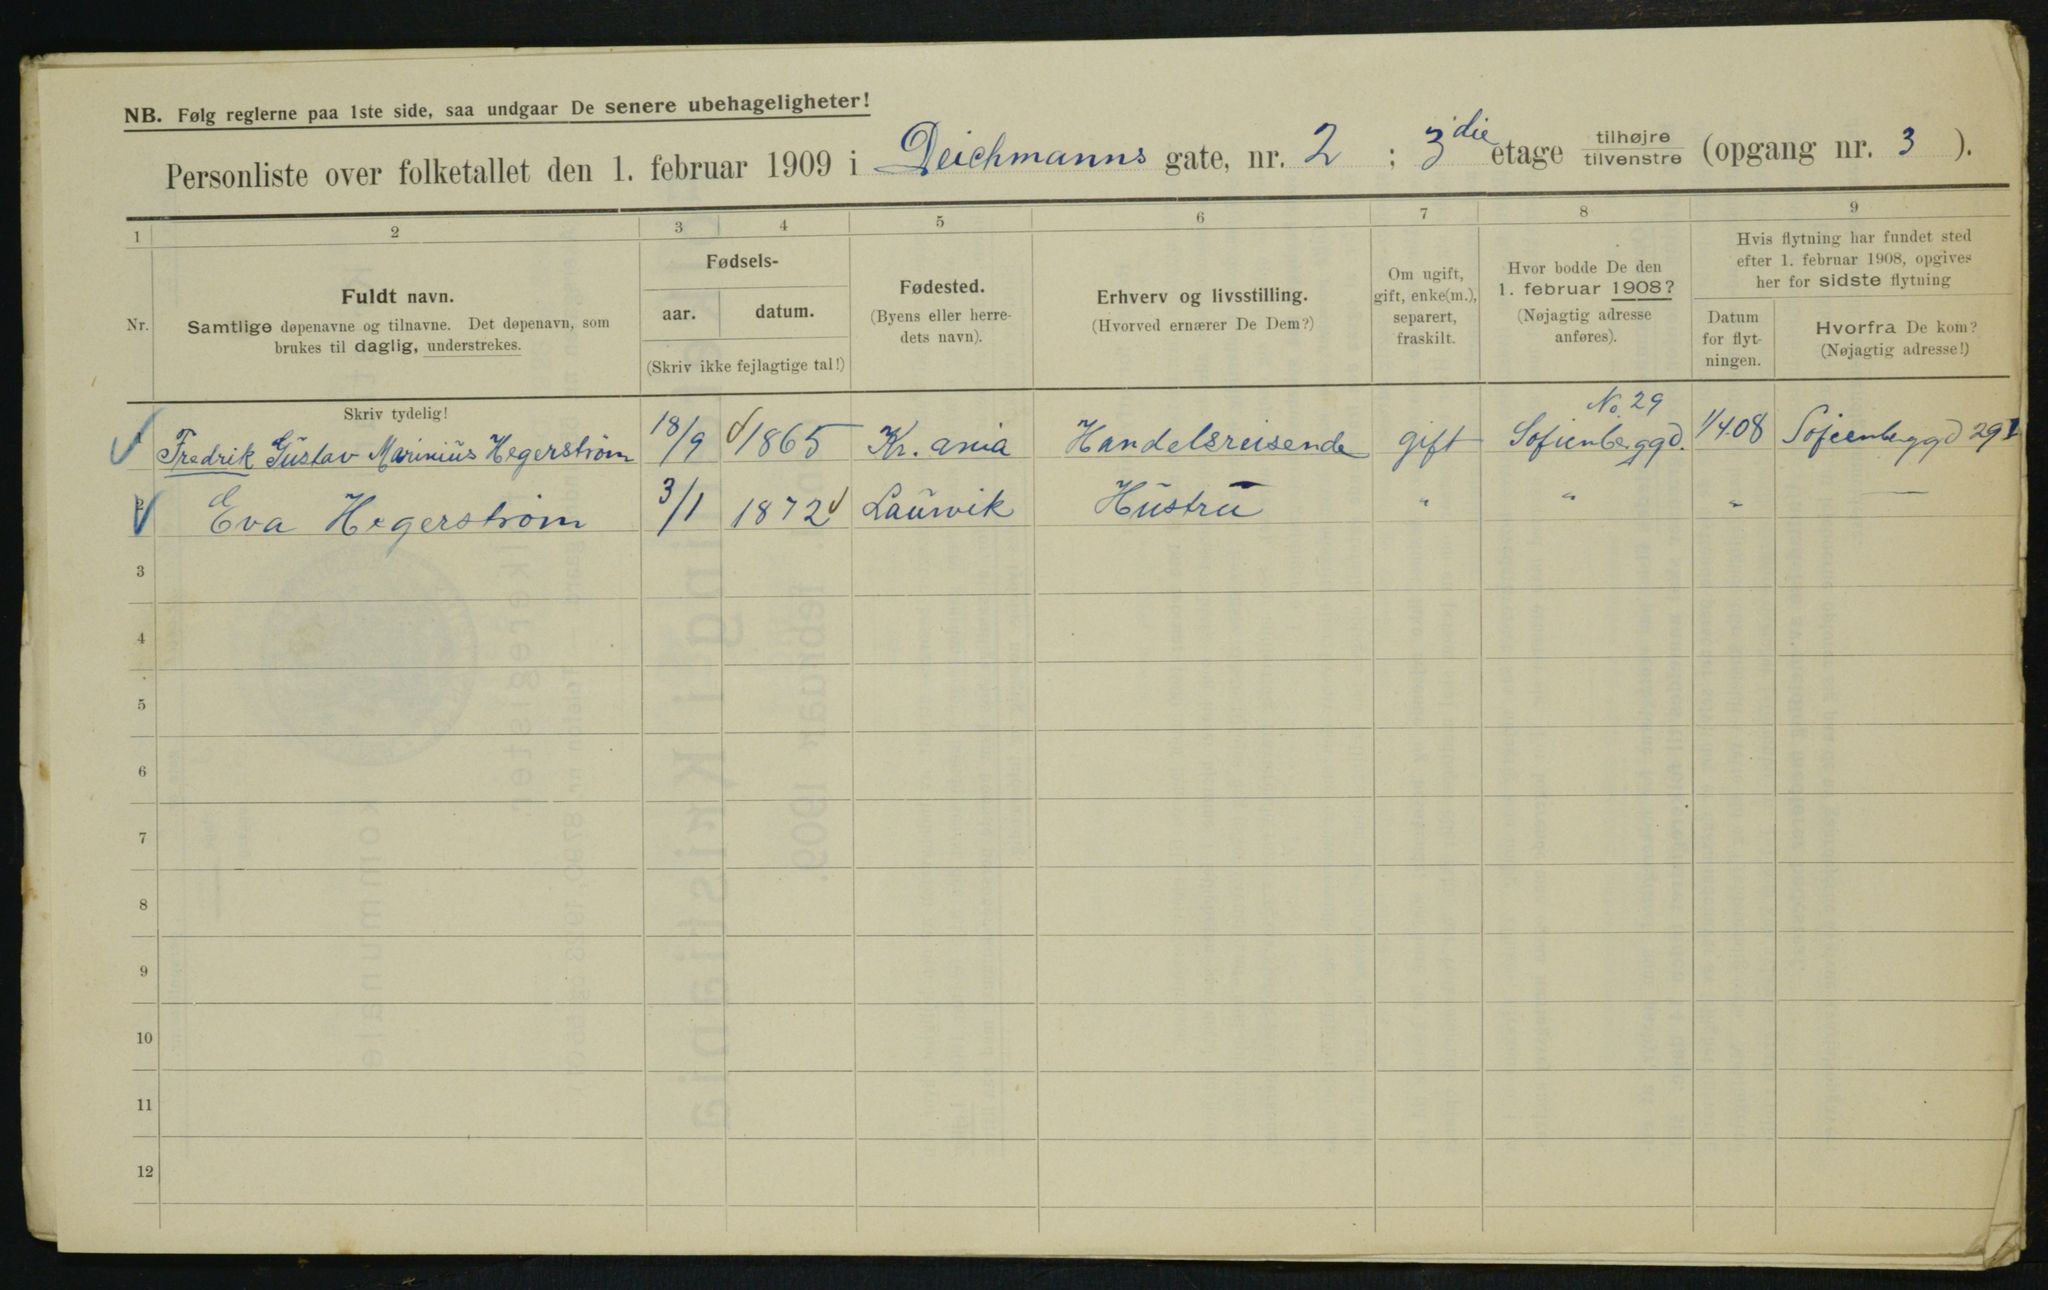 NB. Følg reglerne paa 1ste side, saa undgaar De senere ubehageligheter!
Personliste over folketallet den 1. februar 1909 i Deichmanns gate, nr. 2 ; 3die etage tilhøjre tilvenstre (opgang nr. 3 ).
1 2 3 4 5 6 7 8 9
Nr.
Fuldt navn.
Samtlige døpenavne og tilnavne. Det døpenavn, som
brukes til daglig, understrekes.
Fødsels-
aar. datum.
(Skriv ikke fejlagtige tal!)
Fødested.
(Byens eller herre-
dets navn).
Erhverv og livsstilling.
(Hvorved ernærer De Dem?)
Om ugift,
gift, enke(m.),
separert,
fraskilt.
Hvor bodde De den
1. februar 1908?
(Nøjagtig adresse
anføres).
Hvis flytning har fundet sted
efter 1. februar 1908, opgives
her for sidste flytning
Datum
for flyt-
ningen.
Hvorfra De kom?
(Nøjagtig adresse!)
Skriv tydelig!
No. 29
Fredrik Gustav Marinius Hegerstrøm 18/9 1865 Kr.ania Handelsreisende gift Sofienberggd. 1/4 08 Sofienberggd 29 I
2 Eva Hegerstrøm 3/1 1872 Laurvik Hustru " " " —
3
4
5
6
7
8
9
10
11
12